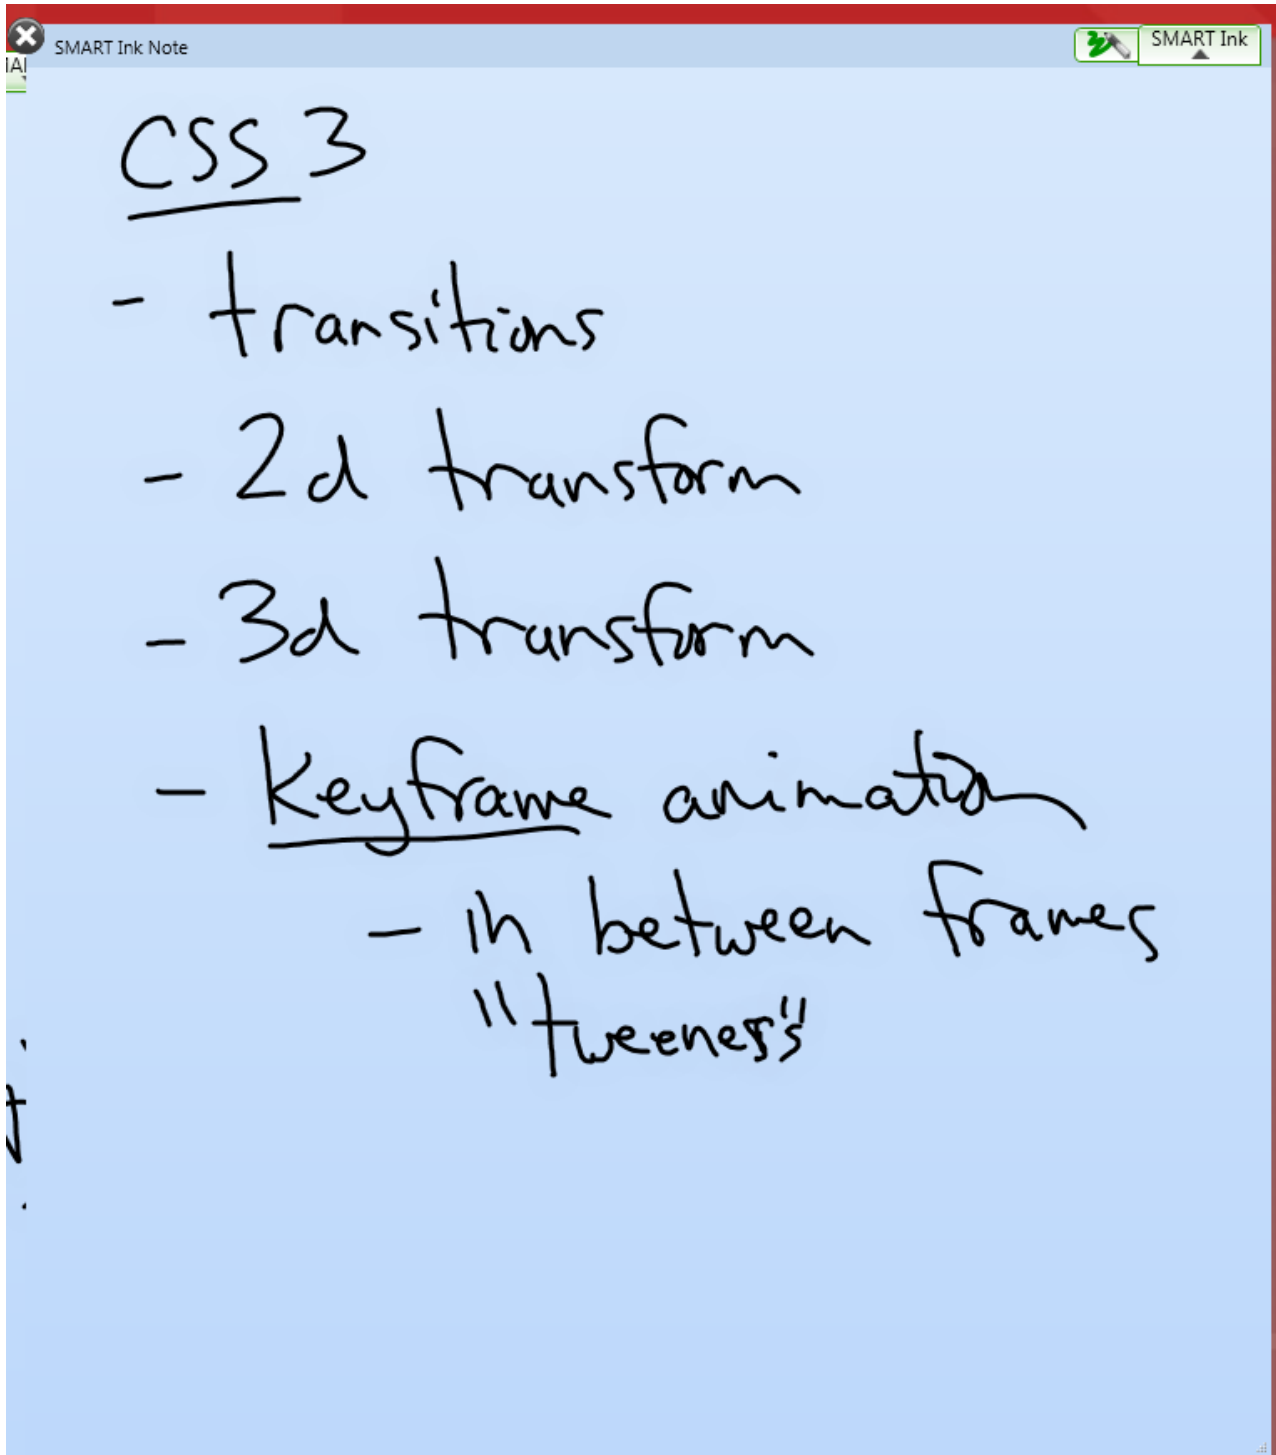 SMART Ink Note
SMART Ink
CSS 3
- transitions
- 2d transform
- 3d transform
- Keyframe animation
- in between frames
"tweeners"